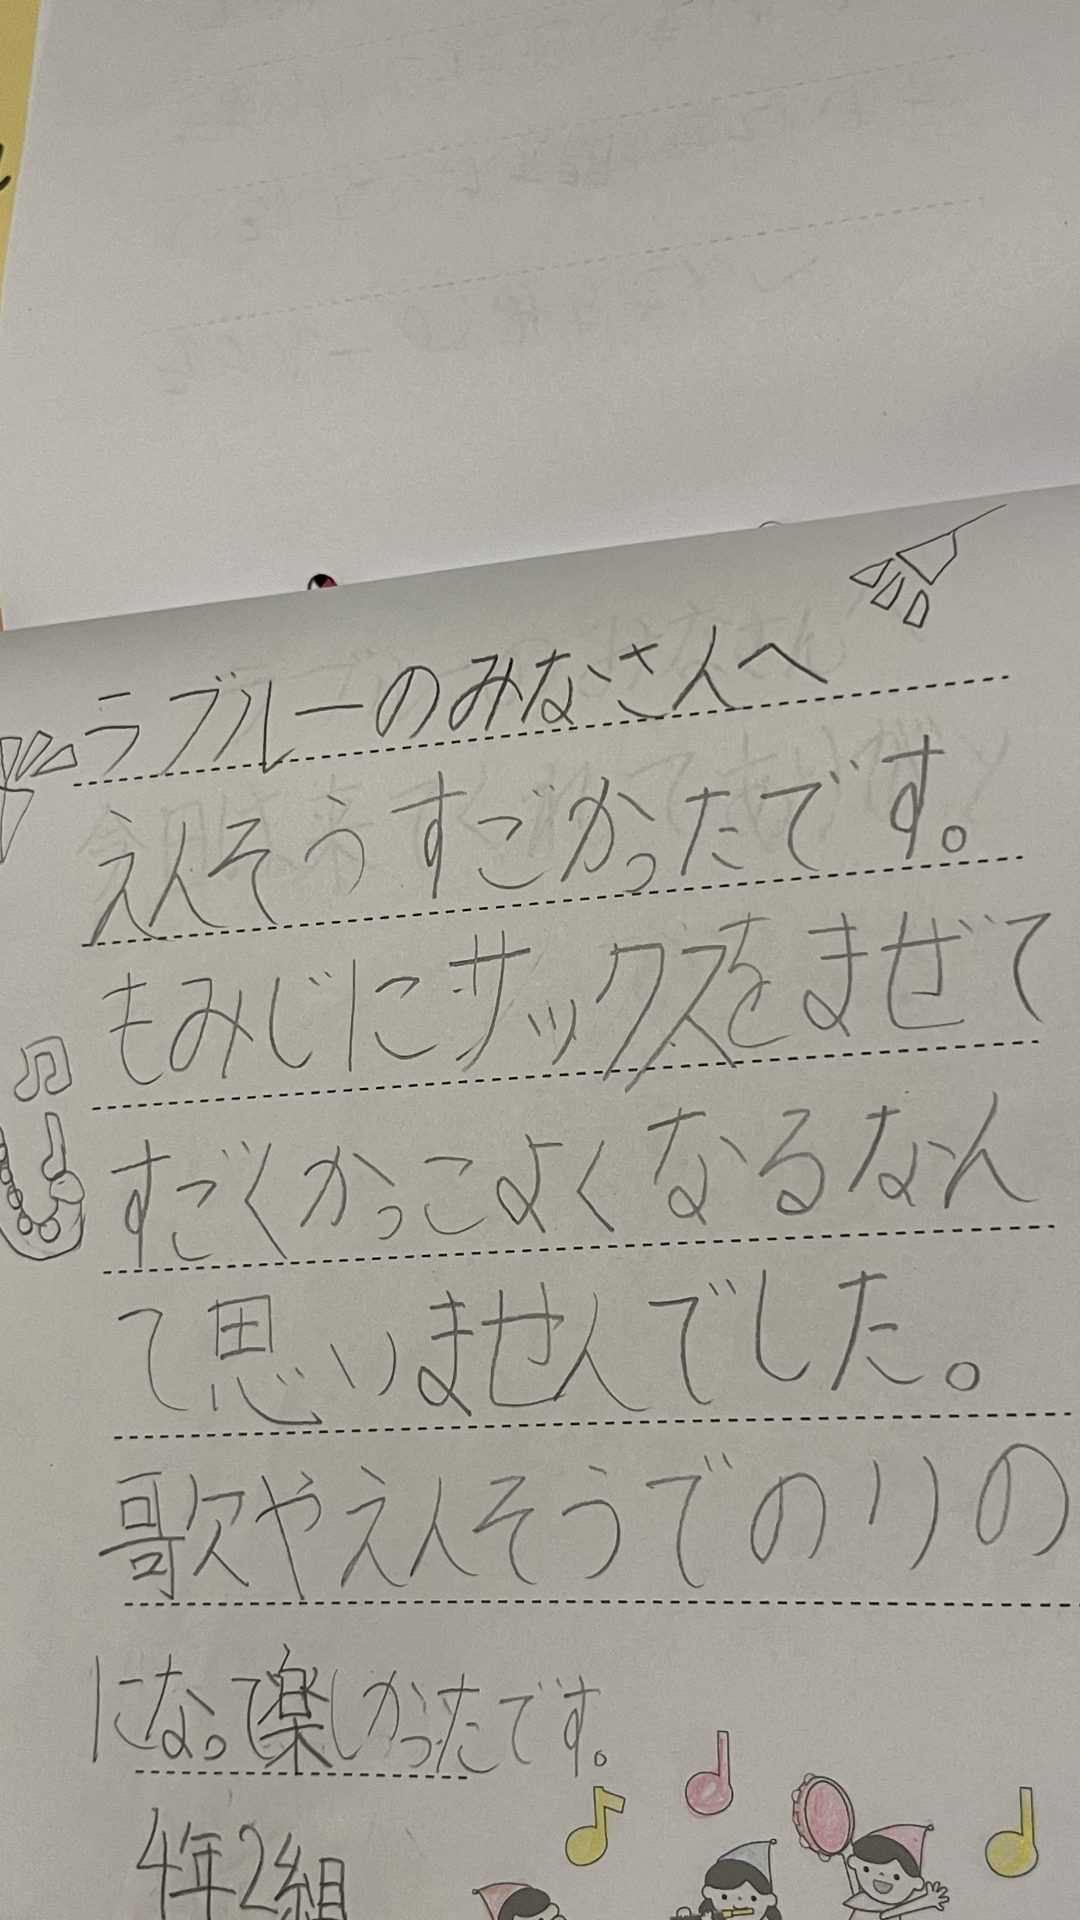 ラブルーのみなさんへ
えんそうすごかったです。
もみじにサックスをまぜて
すごくかっこよくなるなん
て思いませんでした。
歌やえんそうでのりの
になって楽しかったです。
4年2組